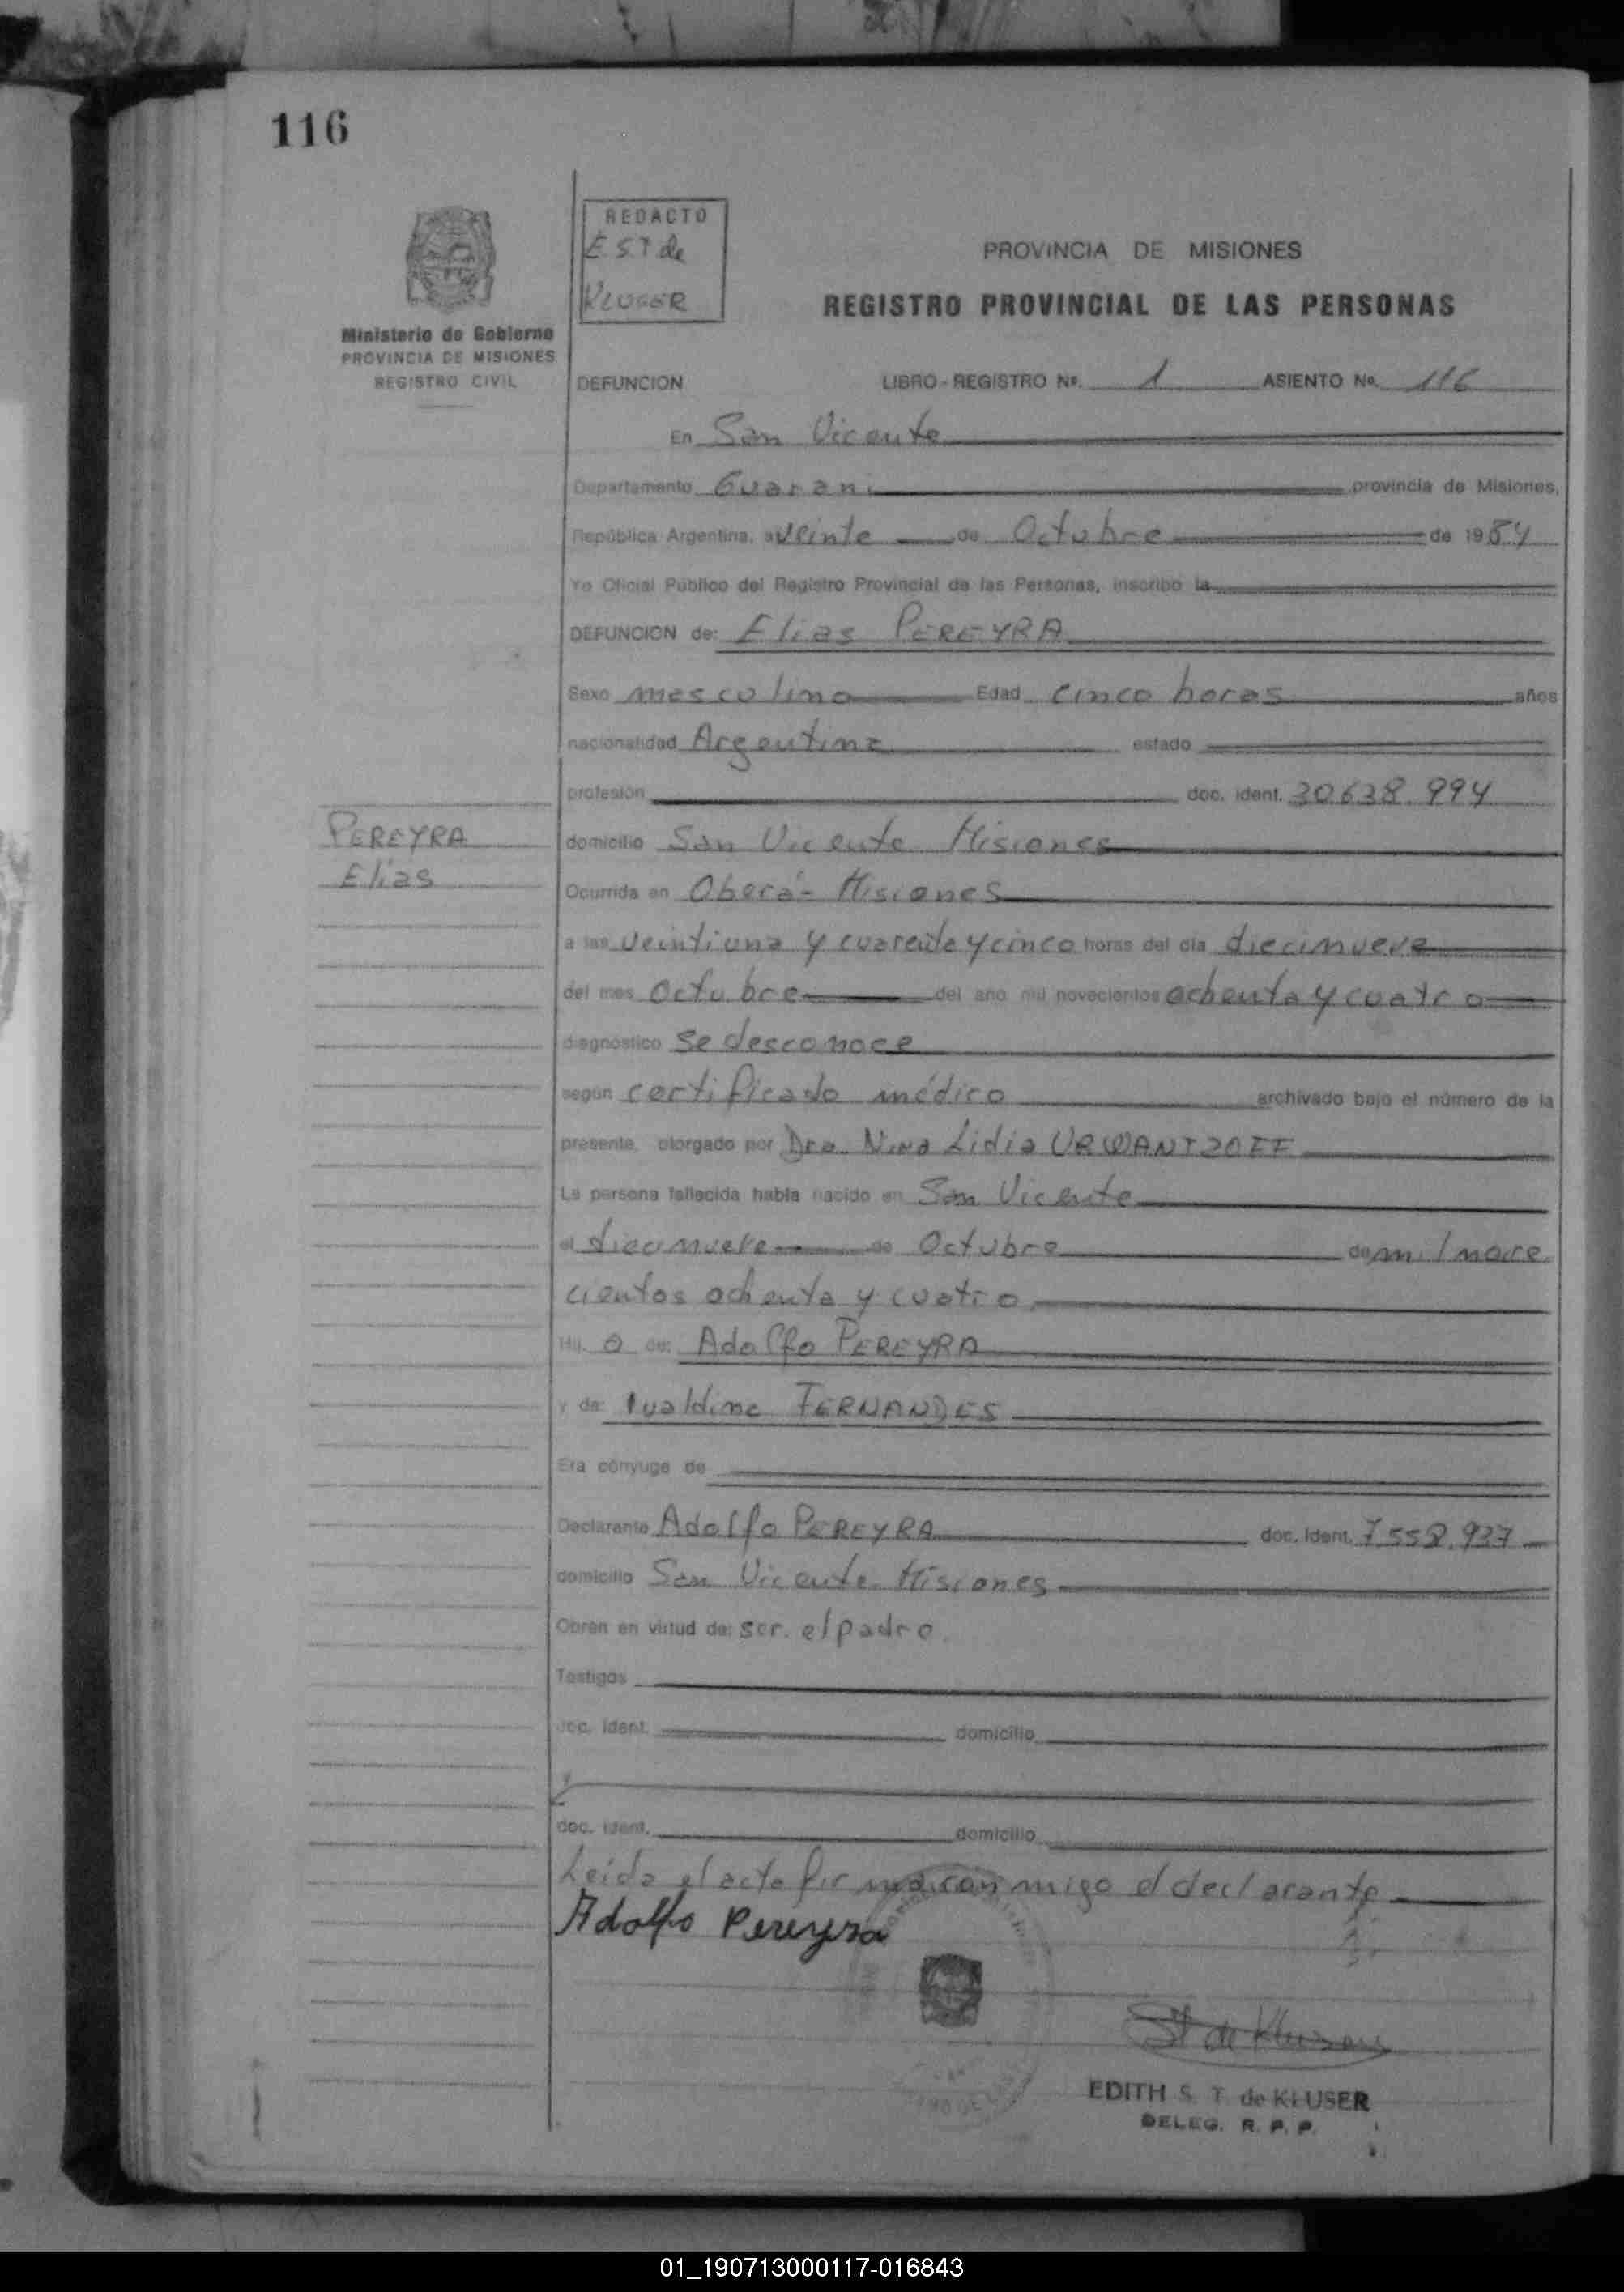 116
REDACTO
E. S. T de
KLUSER
PROVINCIA DE MISIONES
REGISTRO PROVINCIAL DE LAS PERSONAS
Ministerio de Gobierno
PROVINCIA DE MISIONES
REGISTRO CIVIL
DEFUNCION LIBRO - REGISTRO Nº. 1 ASIENTO No. 116
En San Vicente
Departamento Guarani provincia de Misiones,
República Argentina, a veinte de Octubre de 1984
Yo Oficial Público del Registro Provincial de las Personas, inscribo la
DEFUNCION de: Elias PEREYRA
Sexo masculino Edad cinco horas años
nacionalidad Argentina estado
profesión doc. ident. 30.638.994
PEREYRA
Elias
domicilio San Vicente Misiones
Ocurrida en Oberá - Misiones
a las veintiuna y cuarenta y cinco horas del día diecinueve
del mes Octubre del año mil novecientos ochenta y cuatro
diagnóstico se desconoce
según certificado médico archivado bajo el número de la
presente, otorgado por Dra. Nina Lidia URWANTZOFF
La persona fallecida había nacido en San Vicente
el diecinueve de Octubre de mil nove
cientos ochenta y cuatro
Hij o de: Adolfo PEREYRA
y de: Lualdina FERNANDES
Era cónyuge de
Declarante Adolfo PEREYRA doc. ident. 7.558.937
domicilio San Vicente Misiones
Obran en virtud de: ser el padre.
Testigos
doc. ident. domicilio
y
doc. ident. domicilio
Leida el acta firma con migo el declarante
Adolfo Pereyra
ST de Kluser
EDITH S. T. de KLUSER
DELEG. R. P. P.
01_190713000117-016843